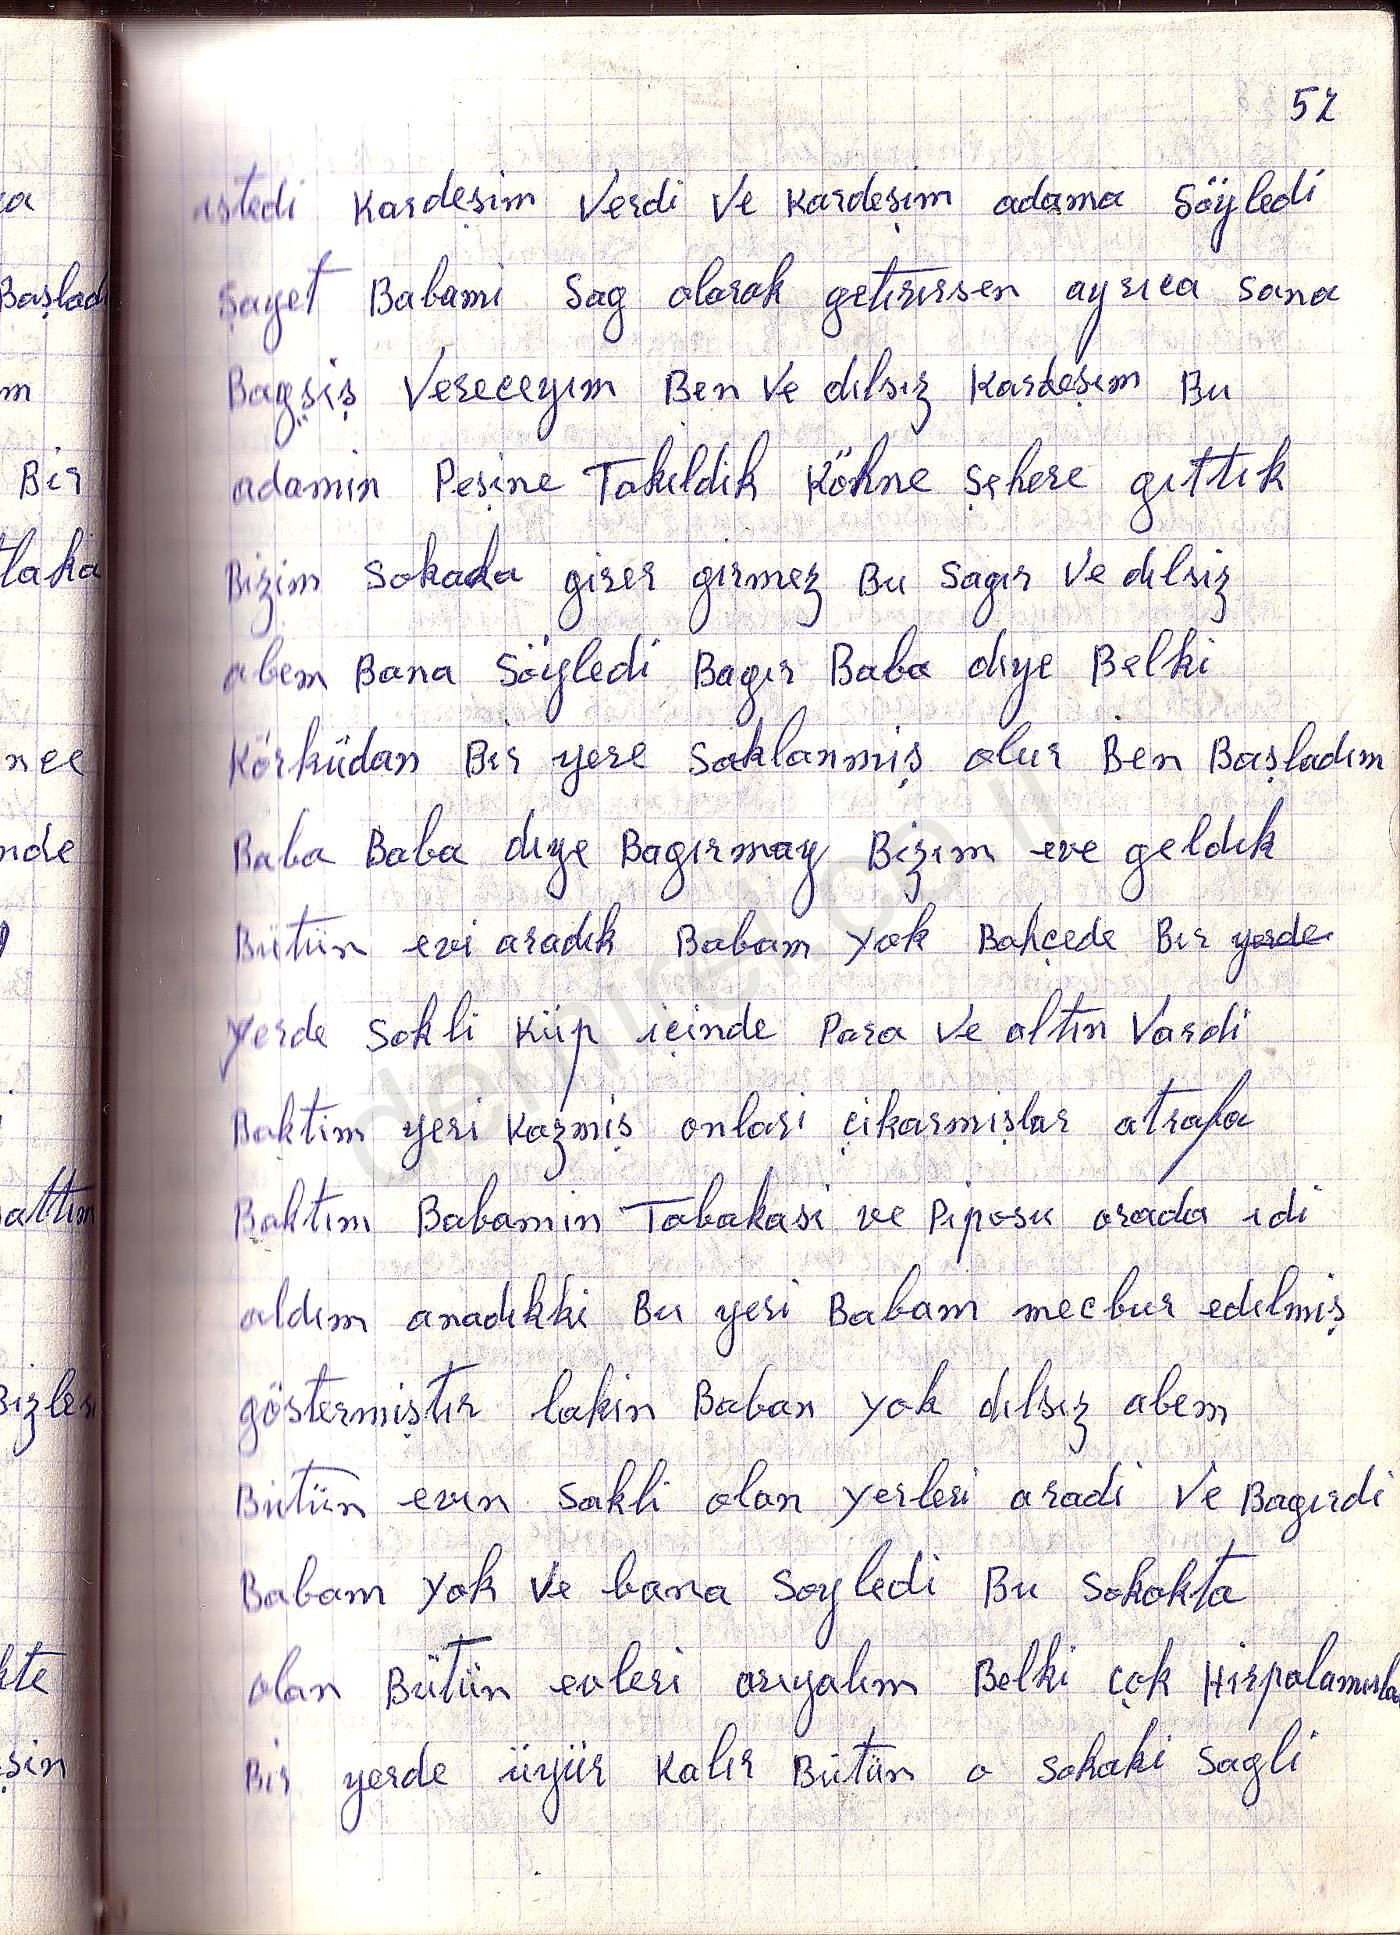 52
istedi Kardeşim Verdi Ve Kardeşim adama Söyledi
Şayet Babami Sag olarak getırırsen ayrıca sana
Bagşiş Vereceyım Ben Ve dılsız Kardeşım Bu
adamin Peşine Takıldık Köhne Şehere gıttık
Bizim Sokaka gırer girmez Bu Sagır Ve dılsiz
abem Bana Söyledi Bagır Baba dıye Belki
Körküdan Bır yere Saklanmiş olur Ben Başladım
Baba Baba dıye Bagırmay Bizım eve geldık
Bütün evi aradık Babam yok Bahçede Bır yerde
yerde Sakli Küp ıçinde Para Ve altın Vardi
Baktim yeri Kazmiş onlari çikarmişlar atrafa
Baktım Babamin Tabakasi ve Piposu orada ıdi
aldım anadıkki Bu yeri Babam mecbur edılmiş
göstermiştır lakin Baban yok dılsız abem
Bütün evın Sakli olan yerleri aradi Ve Bagırdi
Babam yok Ve bana Soyledi Bu Sokakta
olan Bütün evleri arıyalım Belki çok Hirpalamışla
Bir yerde üyür Kalır Bütün o Sokaki Sagli
ca
Başladı
m
Bir
nce
nde
attım
Bizleri
kte
şin